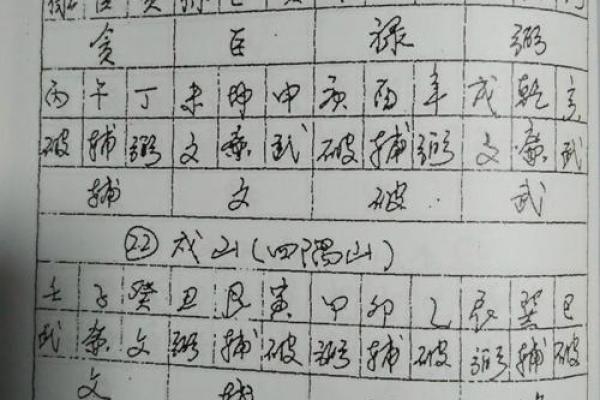 贪 巨 禄 弼
丙 午 丁 未 坤 申 庚 酉 辛 戌 乾 亥
破 辅 弼 文 廉 武 破 辅 弼 文 廉 武
辅 文 破 武
22 戌山(四隅山)
壬 子 癸 丑 艮 寅 甲 卯 乙 辰 巽 巳
武 廉 文 弼 辅 破 弼 辅 破 弼 辅 破
文